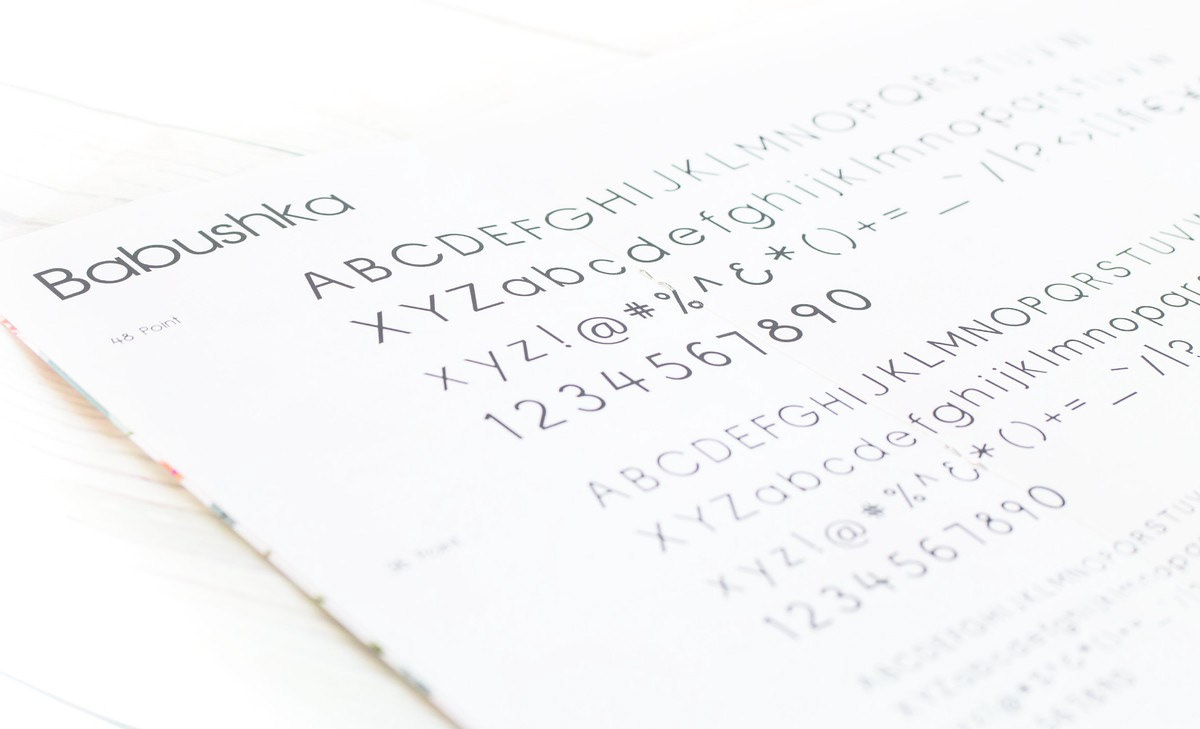 Babushka
48 Point
ABCDEFGHIJKLMNOPQRSTUV
XYZabcdefghijklmnopqrstuv
xyz!@#%^&*()+= _` /\|?<>[]
1234567890
Point
ABCDEFGHIJKLMNOPQRSTUV
XYZabcdefghijklmnopqr
xyz!@#%^&*()+= _` /\|?
1234567890
ABCDEFGHIJKLMNOPQRSTU